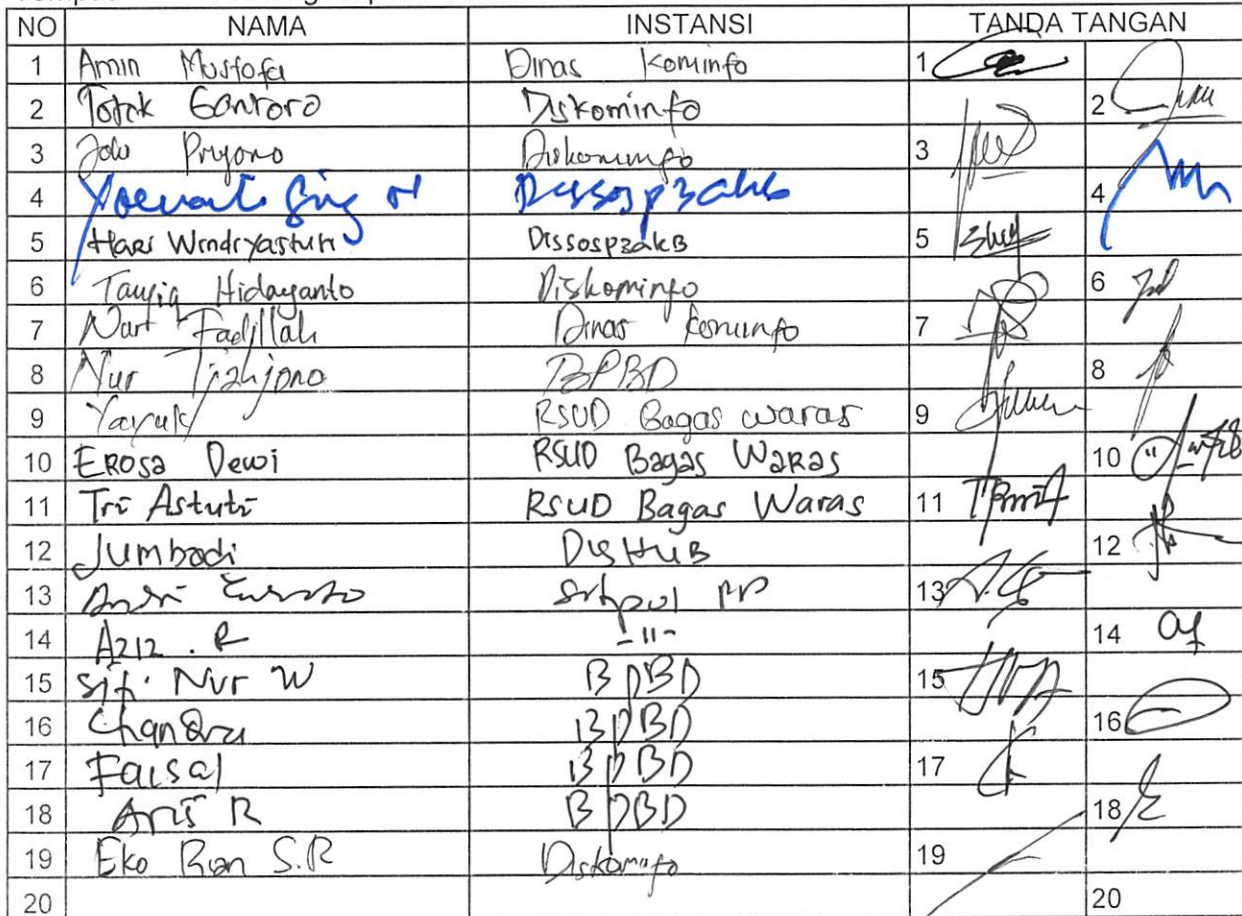 NO NAMA INSTANSI TANDA TANGAN
1 Amin Mustofa Dinas Kominfo 1
2 Totok Gantoro Diskominfo 2
3 Joko Priyono Diskominfo 3
4 Dissosp3akb 4
5 Hari Windryastuti Dissosp3akB 5
6 Taufiq Hidayanto Diskominfo 6
7 Nur Fadjllah Dinas Kominfo 7
8 Nur Tjahjono BPBD 8
9 Yayuk RSUD Bagas waras 9
10 Erosa Dewi RSUD Bagas Waras 10
11 Tri Astuti RSUD Bagas Waras 11
12 Jumbadi DisHuB 12
13 Satpol PP 13
14 Aziz . R -11- 14
15 Siti Nur W BPBD 15
16 Chandra BPBD 16
17 Faisal BPBD 17
18 Aris R BPBD 18
19 Eko S.R Diskominfo 19
20 20